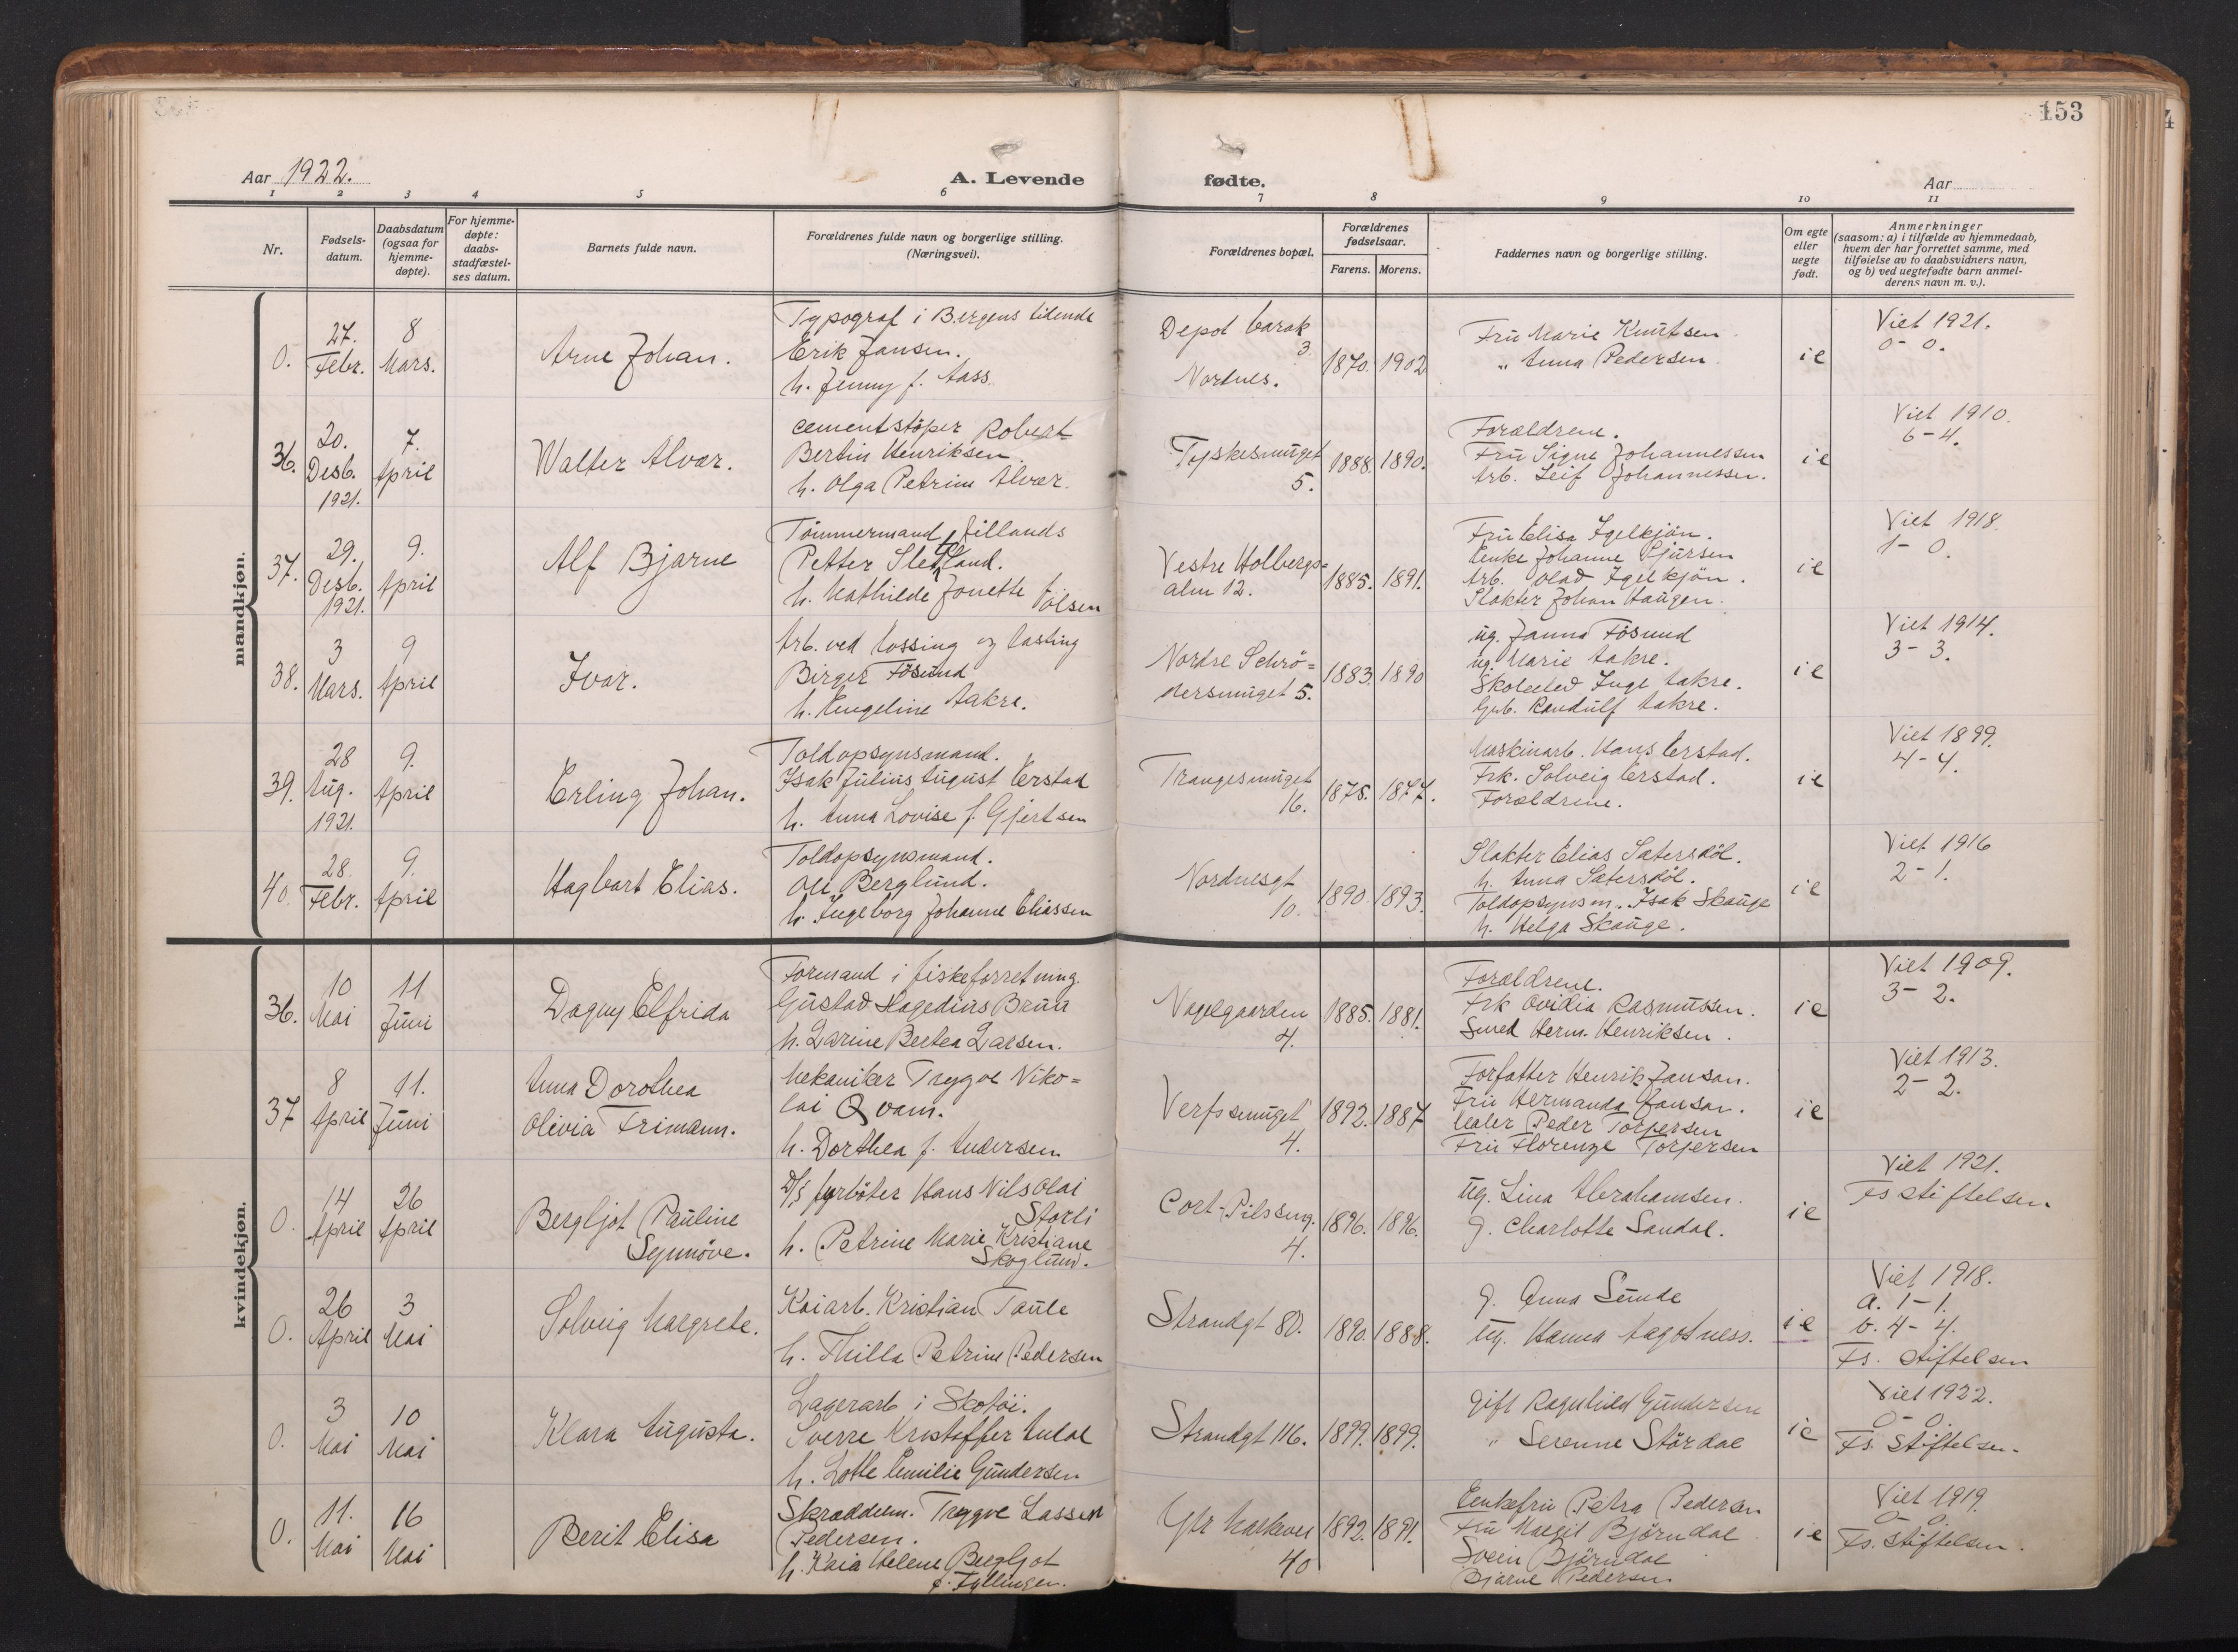 153
Aar 1922.
A. Levende
fødte.
Aar
1 2 3 4 5 6 7 8 9 10 11
Nr.
Fødsels-
datum.
Daabsdatum
(ogsaa for
hjemme-
døpte).
For hjemme-
døpte:
daabs-
stadfæstel-
ses datum.
Barnets fulde navn.
Forældrenes fulde navn og borgerlige stilling.
(Næringsvei).
Forældrenes bopæl.
Forældrenes
fødselsaar.
Farens. Morens.
Faddernes navn og borgerlige stilling.
Om egte
eller
uegte
født.
Anmerkninger
(saasom: a) i tilfælde av hjemmedaab,
hvem der har forrettet samme, med
tilføielse av to daabsvidners navn,
og b) ved uegtefødte barn anmel-
derens navn m. v.).
mandkjøn.
0.
27.
Febr.
8
Mars.
Arne Johan.
Typograf i Bergens tidende
Erik Jansen.
h. Jenny f. Aass.
Depot barak
3
Nordnes.
1870. 1902
Fru Marie Knutsen
„ Anna Pedersen
ie
Viet 1921.
0 - 0.
36.
20.
Desb.
1921.
7.
April
Walter Alvar.
Cementstøper Robert
Bertin Henriksen.
h. Olga Petrine Alvær.
Tyskesmuget
5.
1888. 1890.
Forældrene.
Fru Signe Johannessen
Arb. Leif Johannessen.
ie
Viet 1910.
6-4.
37.
29.
Desb.
1921.
9.
April
Alf Bjarne
Tømmermand Jillands
Petter Sletland.
h. Mathilde Jonette Tolsen
Vestre Holbergs=
alm 12.
1885. 1891.
Fru Elisa Igelkjøn.
Enke Johanne Sjursen
Arb. Olav Igelkjøn.
Slakter Johan Haugen.
ie
Viet 1918.
1- 0.
38.
3
Mars.
9
April
Ivar.
Arb. ved lossing og lasting
Birger Føsund
h. Engeline Aakre.
Nordre Schrø=
dersmuget 5.
1883. 1890
ug. Janna Føsund
ug. Marie Aakre.
Skoleelev Inge Aakre.
Gub. Randulf Aakre.
ie
Viet 1914.
3- 3.
39.
28
Aug.
1921.
9.
April
Erling Johan.
Toldopsynsmand.
Isak Julius August Erstad
h. Anna Lovise f. Gjertsen
Trangesmuget
16.
1875. 1877.
Maskinarb. Hans Erstad.
Frk. Solveig Erstad.
Forældrene.
ie
Viet 1899.
4-4.
40.
28.
Febr.
9.
April
Hagbart Elias.
Toldopsynsmand.
Ole Berglund.
h. Ingeborg Johanne Eliassen
Nordnesgt
10.
1890. 1893.
Slakter Elias Satersdøl.
h. Anna Satersdøl.
Toldopsynsm. Isak Skauge
h. Helga Skauge.
ie
Viet 1916
2-1.
kvindekjøn.
36.
10
Mai
11
Juni
Dagny Elfrida
Formand i fiskeforretning.
Gustav Hagedius Bruu
h. Larine Bertea Larsen.
Nagelgaarden
4.
1885. 1881.
Forældrene.
Frk Ovidia Rasmussen.
Smed Herm. Henriksen.
ie
Viet 1909.
3- 2.
37
8
April
11.
Juni
Anna Dorothea
Olivia Frimann.
Mekaniker Trygve Niko=
lai Qvam.
h. Dorthea f. Andersen
Verfssmuget
4.
1892. 1887
Forfatter Henrik Janson.
Fru Hermanda Janson.
Maler Peder Torjersen
Fru Florenze Torjersen
ie
Viet 1913.
2- 2.
0.
14
April
26
April
Bergljot Pauline
Synnøve.
D/s fyrbøter Hans Nils Olai
Storli
h. Petrine Marie Kristiane
Skoglund.
Cort-Pilssmg.
4.
1896. 1896.
Ug. Lina Abrahamsen.
g. Charlotte Sandal.
ie
Viet 1921.
Fs stiftelsen.
0.
26
April
3
Mai
Solveig Margrete.
Kaiarb. Kristian Taule
h. Thilla Petrine Pedersen
Strandgt 80.
1890. 1888.
g. Anna Sunde
Ug. Hanna Aagotness.
ie
Viet 1918.
a. 1-1.
b. 4- 4.
Fs. stiftelsen
0.
3
Mai
10
Mai
Klara Augusta.
Lagerarb i Skotøi.
Sverre Kristoffer Aulal
h. Lotte Emilie Gundersen
Strandgt 116.
1899. 1899.
Gift Ragnhild Gundersen
„ Serenne Stördal
ie
Viet 1922.
0- 0.
Fs. Stiftelsen.
0.
11.
Mai
16
Mai
Berit Elisa
Skræddem. Trygve Lassen
Pedersen.
h. Kaia Helene Bergljot
f. Fyllingen.
Ytr Markevei
40
1892. 1891.
Enkefru Petra Pedersen
Fru Margit Bjørndal
Svein Bjørndal
Bjarne Pedersen
ie
Viet 1919.
0 - 0
Fs. Stiftelsen.